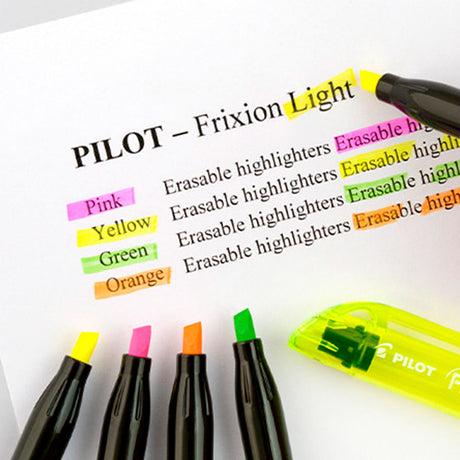 PILOT – Frixion Light
Pink Erasable highlighters Erasable hig
Yellow Erasable highlighters Erasable highl
Green Erasable highlighters Erasable highl
Orange Erasable highlighters Erasable high
PILOT